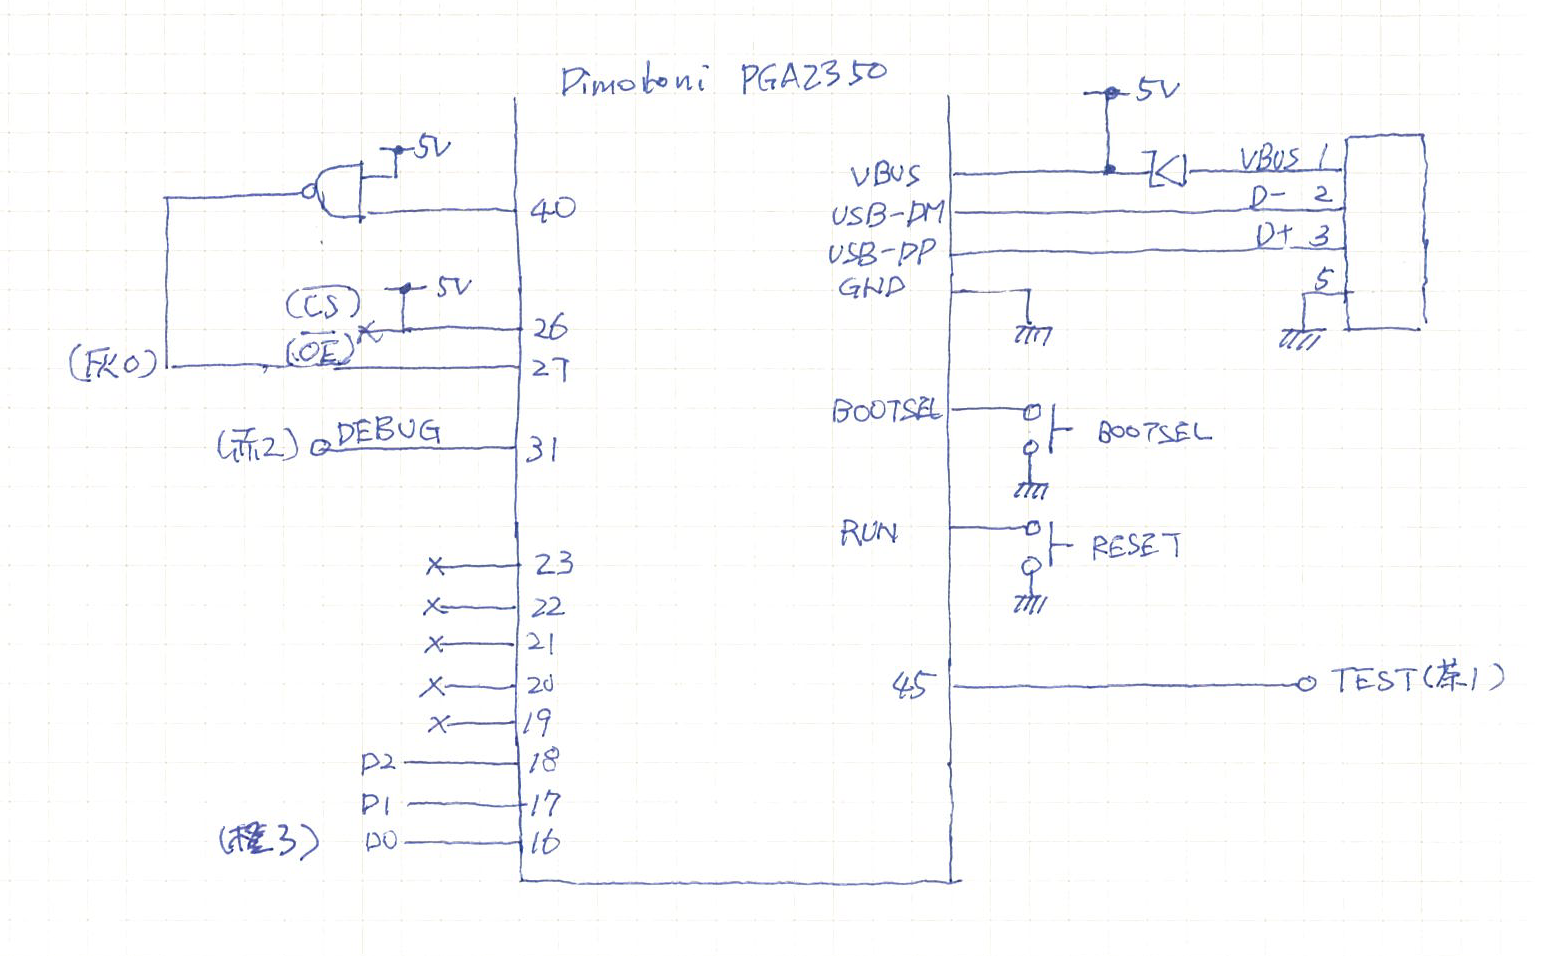 Dimotoni PGA2350
5V
40
(CS)
5V
26
(OE)
27
DEBUG
31
23
22
21
20
19
D2
18
D1
17
D0
16
5V
VBUS
VBUS 1
USB-DM
D- 2
USB-DP
D+ 3
GND
5
BOOTSEL
BOOTSEL
RUN
RESET
45
TEST(茶1)